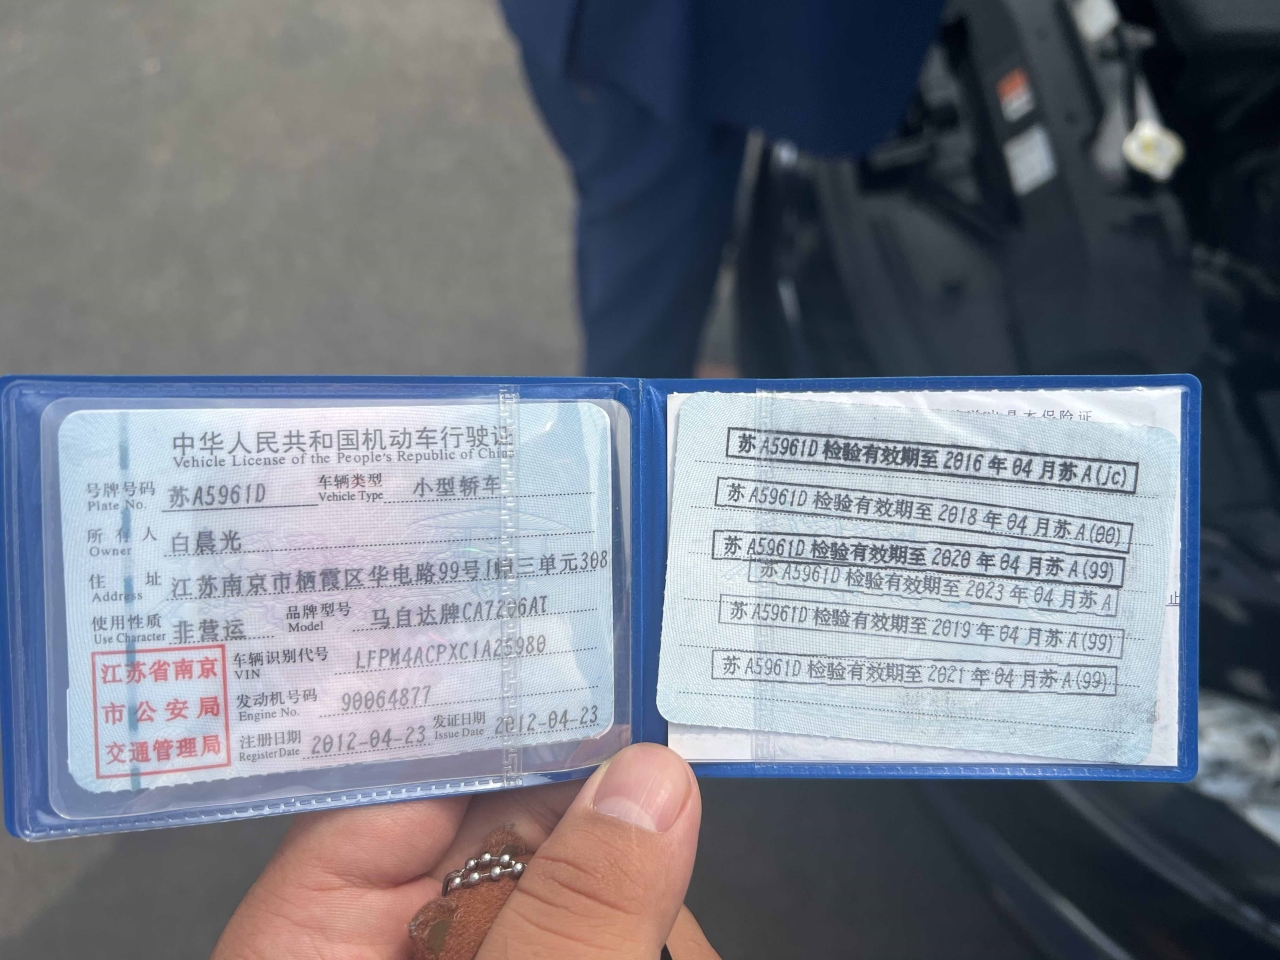 中华人民共和国机动车行驶证
Vehicle License of the People's Republic of China
号牌号码 苏A5961D 车辆类型 小型轿车
Plate No. Vehicle Type
所有人 白晨光
Owner
住址 江苏南京市栖霞区华电路99号1幢三单元308
Address
使用性质 非营运 品牌型号 马自达牌CA7206AT
Use Character Model
车辆识别代号 LFPM4ACPXC1A25980
VIN
发动机号码 90064877
Engine No.
注册日期 2012-04-23 发证日期 2012-04-23
Register Date Issue Date
江苏省南京
市公安局
交通管理局
苏A5961D检验有效期至2016年04月苏A(jc)
苏A5961D检验有效期至2018年04月苏A(00)
苏A5961D检验有效期至2020年04月苏A(99)
苏A5961D检验有效期至2023年04月苏A
苏A5961D检验有效期至2019年04月苏A(99)
苏A5961D检验有效期至2021年04月苏A(99)
保险证
止